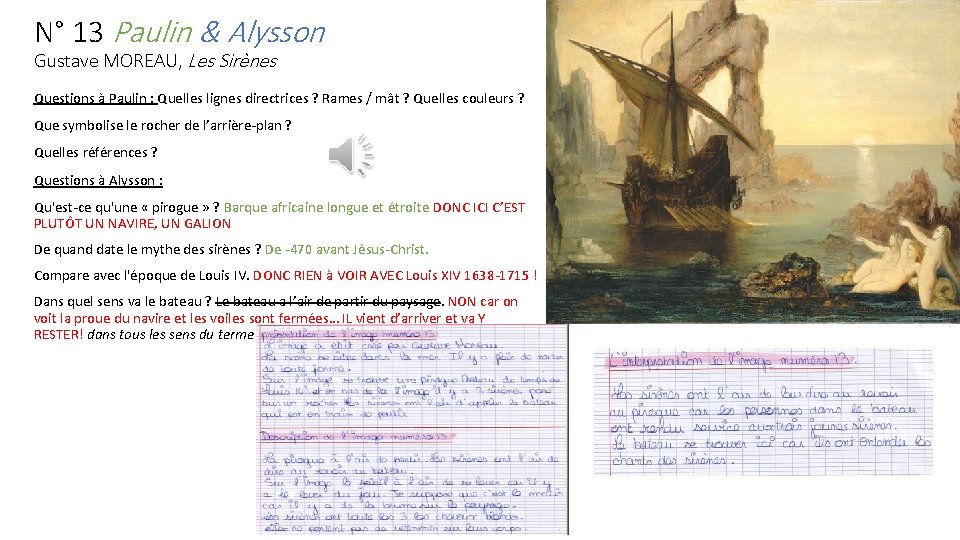 N° 13 Paulin & Alysson
Gustave MOREAU, Les Sirènes
Questions à Paulin : Quelles lignes directrices ? Rames / mât ? Quelles couleurs ?
Que symbolise le rocher de l'arrière-plan ?
Quelles références ?
Questions à Alysson :
Qu'est-ce qu'une « pirogue » ? Barque africaine longue et étroite DONC ICI C'EST
PLUTÔT UN NAVIRE, UN GALION
De quand date le mythe des sirènes ? De -470 avant Jésus-Christ.
Compare avec l'époque de Louis IV. DONC RIEN à VOIR AVEC Louis XIV 1638-1715 !
Dans quel sens va le bateau ? Le bateau a l'air de partir du paysage. NON car on
voit la proue du navire et les voiles sont fermées... IL vient d'arriver et va Y
RESTER! dans tous les sens du terme
présentation de l'image numéro 13.
L'image a était crée par Gustave Moreau.
La scène se situe dans la mer. Il y a plein de rocher
de toute forme.
Sur l'image se trouve une pirogue bateau de temps de
Louis et en bas de la l'image il y a 3 sirènes posé
sur un rocher les sirènes ont l'air d'appeler le bateau
qui est en train de partir
Description de l'image numéro 13
La pirogue à l'air de partir. Les sirènes ont l'air de
dire au revoir au bateau.
Sur l'image le soleil à l'air de se lever car il y
a le lever du jour. Je suppose que c'est le matin
car il y a de la brume sur le paysage.
Les sirènes ont toute les 3 les cheveux blonds.
elles ne portent pas de vêtements sur leurs corps.
L'interprétation de l'image numéro 13.
Les sirènes ont l'air de leur dire au revoir
au pirogue car les personnes dans le bateau
ont rendu service aux trois jeunes sirènes.
Le bateau se trouver ici car ils ont entendu les
chants des sirènes.